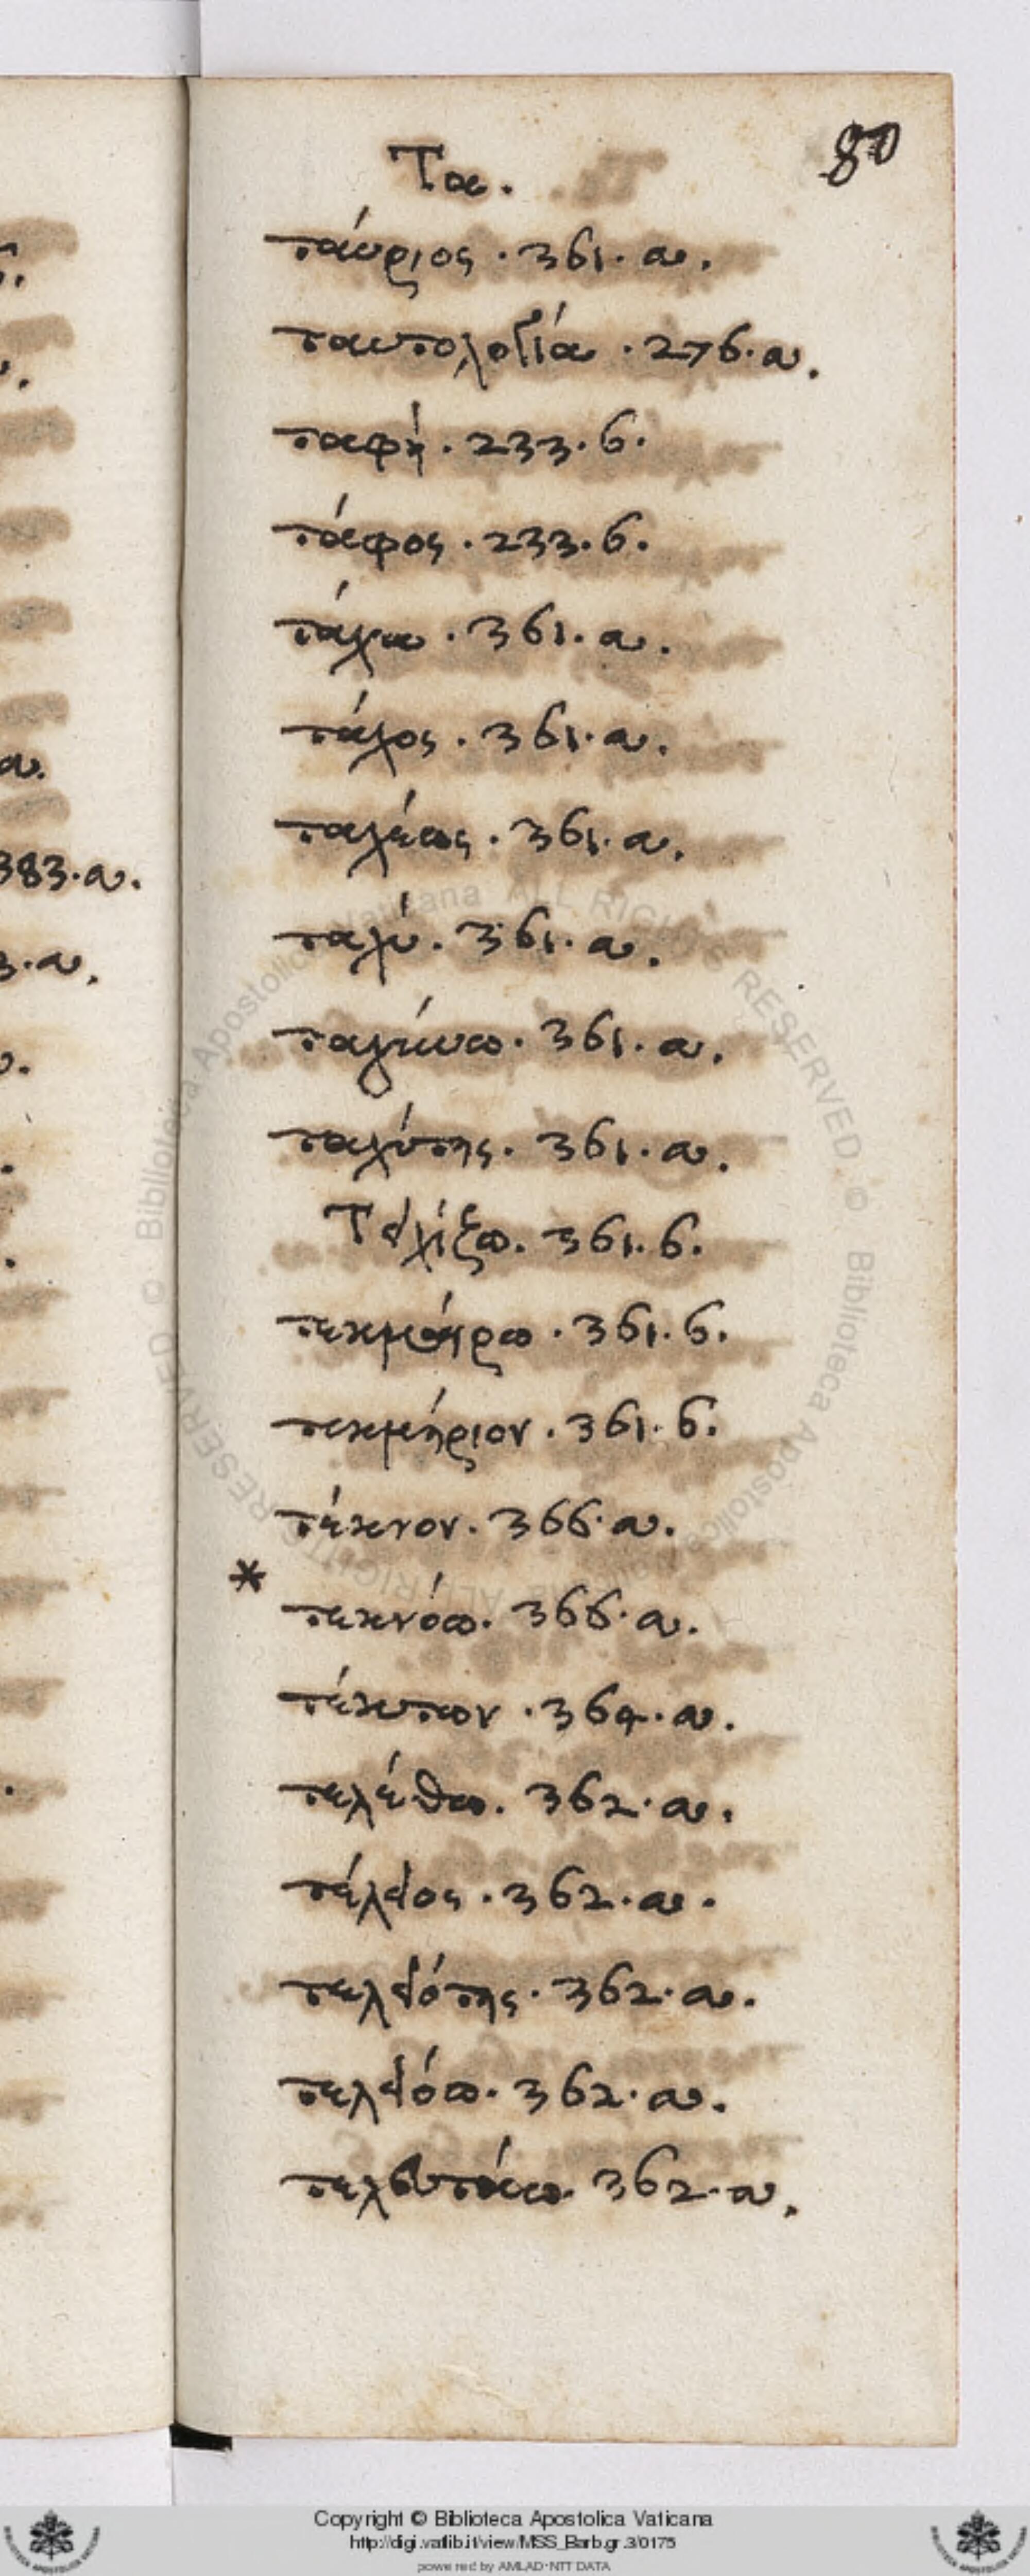 80
Τα.
ταύριος . 361. α.
ταυτολογία . 276. α.
ταφή . 233. β.
τάφος . 233. β.
τάχα . 361. α.
τάχος . 361. α.
ταχέως . 361. α.
ταχύ . 361. α.
ταχύνω . 361. α.
ταχύτης . 361. α.
Τειχίζω . 361. β.
τεκμαίρω . 361. β.
τεκμήριον . 361. β.
τέκνον . 366. α.
*
τεκνόω . 366. α.
τέκτων . 364. α.
τελέθω . 362. α.
τέλειος . 362. α.
τελειότης . 362. α.
τελειόω . 362. α.
τελευτάω . 362. α.
383. α.
Copyright © Biblioteca Apostolica Vaticana
http://digi.vatlib.it/view/MSS_Barb.gr.3/0175
powered by AMLAD-NTT DATA